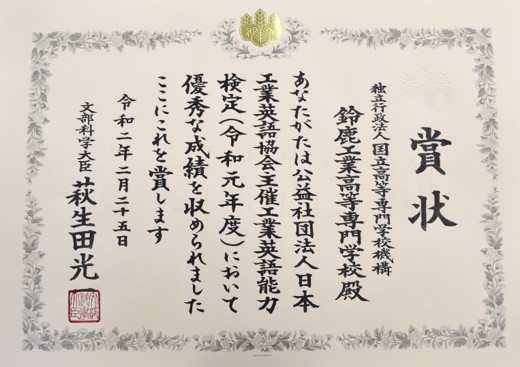 賞状
独立行政法人国立高等専門学校機構
鈴鹿工業高等専門学校殿
あなたがたは公益社団法人日本
工業英語協会主催工業英語能力
検定(令和元年度)において
優秀な成績を収められました
ここにこれを賞します
令和二年二月二十五日
文部科学大臣 萩生田光一